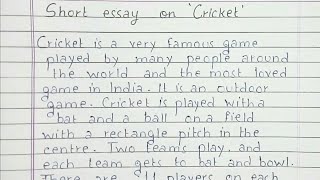 Short essay on 'Cricket'
Cricket is a very famous game
played by many people around
the world and the most loved
game in India. It is an outdoor
game. Cricket is played with a
bat and a ball on a field
with a rectangle pitch in the
centre. Two teams play, and
each team gets to bat and bowl.
There are 11 players on each